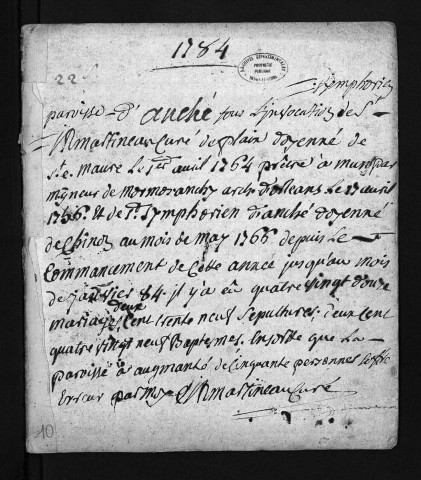 1784
ARCHIVES DEPARTEMENTALES
PROPRIETE
PUBLIQUE
INDRE-ET-LOIRE
22
Symphorien
paroisse d'anché sous l'invocation de St
Martineau Curé de plain doyenné de
Ste maure le 1er avril 1764 prêtre a mung par
mgneur de mormoranchy arch d'orleans le 17 avril
1756. & de St symphorien d'anché doyenné
de Chinon au mois de may 1766 depuis Le
Commancement de Cette année jusqu'au mois
de janvier 84. il y'a eû quatre vingt douze
mariages deux Cent trente neuf sepultures. deux Cent
quatre vingt neuf Baptemes. Ensorte que La
paroisse à augmanté de Cinquante personnes sauf
Erreur par moy Martineau Curé
10